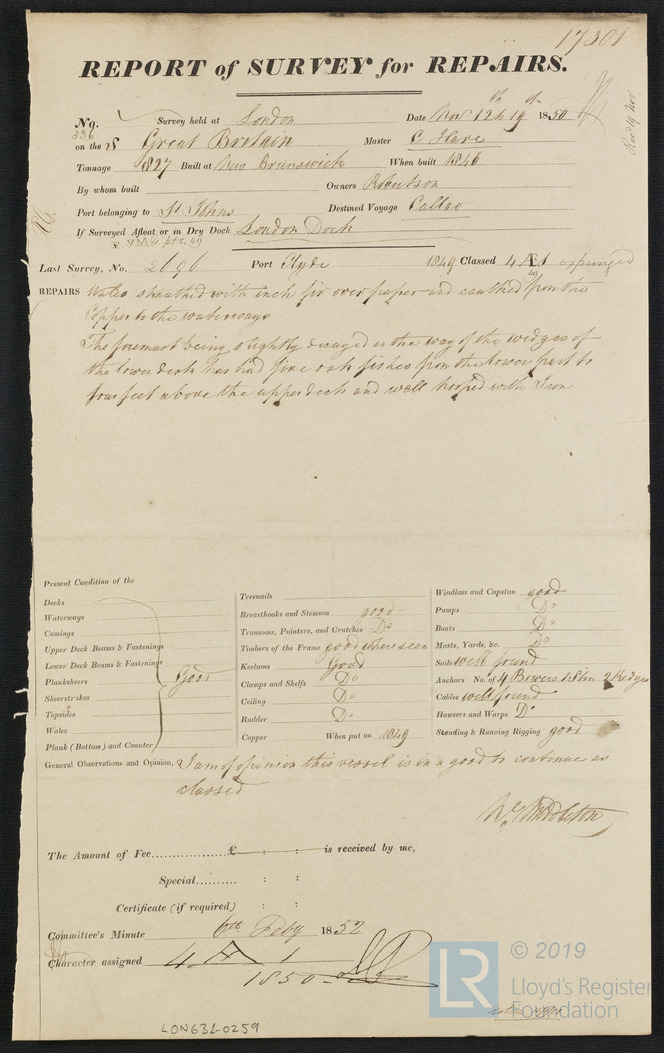 17301
REPORT of SURVEY for REPAIRS.
No. 336 Survey held at London Date Nov 12th 19 1850
on the S Great Britain Master C Hare
Tonnage 827 Built at New Brunswick When built 1846
By whom built Owners Robertson
Port belonging to St Johns Destined Voyage Callao
If Surveyed Afloat or in Dry Dock London Dock
Last Survey, No. 2696 Port Clyde 1849 Classed 4 A 1 expunged
REPAIRS Wales sheathed with inch fir over paper and caulked from the
Copper to the waterways
The foremast being slightly decayed in the way of the wedges of
the lower deck has had five oak fishes from the lower part to
four feet above the upper deck and well hooped with Iron
Present Condition of the
Decks
Waterways
Comings
Upper Deck Beams & Fastenings
Lower Deck Beams & Fastenings
Planksheers Good
Sheerstrakes
Topsides
Wales
Plank (Bottom) and Counter
Treenails
Breasthooks and Stemson good
Transoms, Pointers, and Crutches Do
Timbers of the Frame good where seen
Keelsons Good
Clamps and Shelfs Do
Ceiling Do
Rudder Do
Copper When put on 1849
Windlass and Capstan good
Pumps Do
Boats Do
Masts, Yards, &c. Do
Sails well found
Anchors No. of 4 Bowers 1 Stm 2 Kedges
Cables well found
Hawsers and Warps Do
Standing & Running Rigging good
General Observations and Opinion, I am of opinion this vessel is in a good to continue as
classed
Wm Middleton
The Amount of Fee............... £ : : is received by me,
Special.......... : :
Certificate (if required) : :
Committee's Minute 6th Feby 1852
Character assigned 4 A 1
1850
LR © 2019
Lloyd's Register
Foundation
LON631-0259